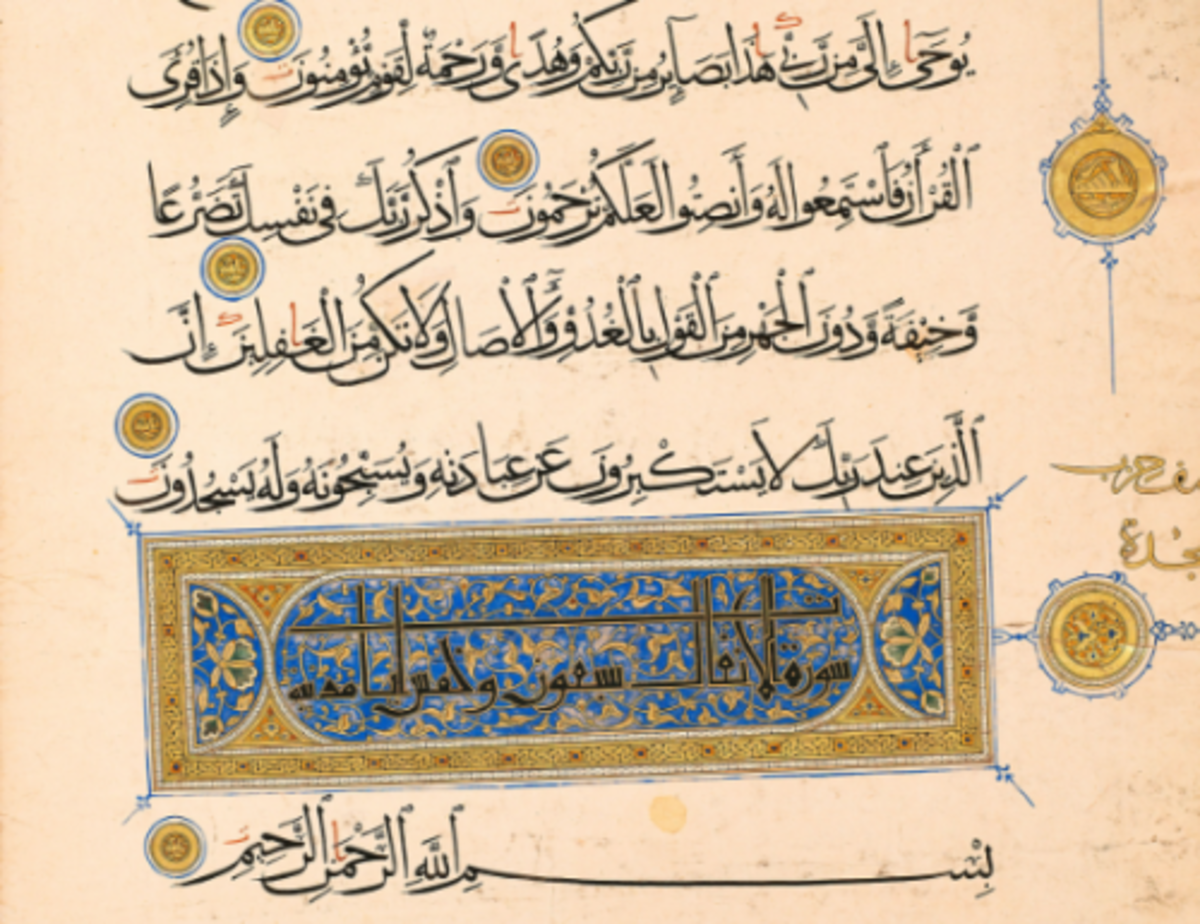 يُوحَىٰ إِلَىَّ مِن رَّبِّى هَٰذَا بَصَآئِرُ مِن رَّبِّكُمْ وَهُدًى وَرَحْمَةٌ لِّقَوْمٍ يُؤْمِنُونَ وَإِذَا قُرِئَ
ٱلْقُرْءَانُ فَٱسْتَمِعُوا لَهُ وَأَنصِتُوا لَعَلَّكُمْ تُرْحَمُونَ وَٱذْكُر رَّبَّكَ فِى نَفْسِكَ تَضَرُّعًا
وَّخِيفَةً وَّدُونَ ٱلْجَهْرِ مِنَ ٱلْقَوْلِ بِٱلْغُدُوِّ وَٱلْآصَالِ وَلَا تَكُن مِّنَ ٱلْغَٰفِلِينَ إِنَّ
ٱلَّذِينَ عِندَ رَبِّكَ لَا يَسْتَكْبِرُونَ عَنْ عِبَادَتِهِ وَيُسَبِّحُونَهُ وَلَهُ يَسْجُدُونَ
سورة الانفال سبعون وخمس ايات مدنية
بِسْمِ ٱللَّهِ ٱلرَّحْمَٰنِ ٱلرَّحِيمِ